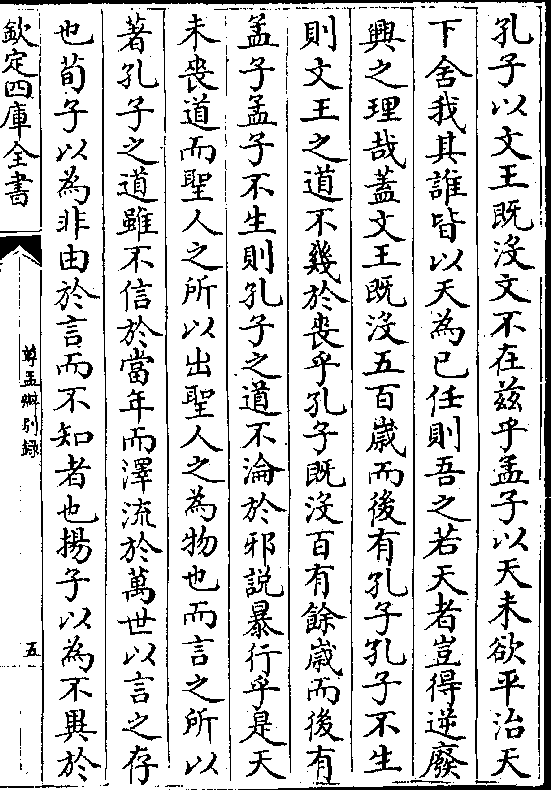 孔子以文王既沒文不在兹乎孟子以天未欲平治天
下舍我其誰皆以天為已任則吾之若天者豈得逆廢
興之理哉蓋文王既沒五百嵗而後有孔子孔子不生
則文王之道不幾於喪乎孔子既沒百有餘嵗而後有
孟子孟子不生則孔子之道不淪於邪説暴行乎是天
未喪道而聖人之所以出聖人之為物也而言之所以
著孔子之道雖不信於當年而澤流於萬世以言之存
也荀子以為非由於言而不知者也揚子以為不異於
欽定四庫全書
尊孟辨別録
五